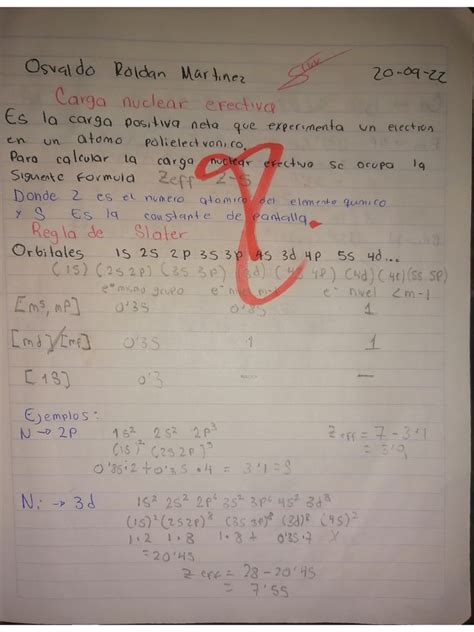 Osvaldo Roldan Martinez 20-09-22
Carga nuclear efectiva
Es la carga positiva neta que experimenta un electron
en un atomo polielectronico.
Para calcular la carga nuclear efectiva se ocupa la
siguente formula Zeff Z-S
Donde Z es el numero atomico del elemente quimico
y S Es la constante de pantalla.
Regla de Slater
Orbitales 1S 2S 2P 3S 3P 4S 3d 4P 5S 4d...
(1S) (2S 2P) (3S 3P) (3d) (4S 4P) (4d) (4f) (5S 5P)
e- mismo grupo e- nivel e- nivel <m-1
[ms, mp] 0'35 0'85 1
[md]/[mf] 0'35 1 1
[1S] 0'3 — —
Ejemplos:
N → 2P 1S² 2S² 2P³ Zeff = 7-3'1
(1S)² (2S 2P)⁵ = 3'9
0'85·2+0'35·4 = 3'1=S
Ni → 3d 1S² 2S² 2P⁶ 3S² 3P⁶ 4S² 3d⁸
(1S)² (2S2P)⁸ (3S 3P)⁸ (3d)⁸ (4S)²
1·2 1·8 1·8+ 0'35·7 X
=20'45
Zeff = 28-20'45
= 7'55